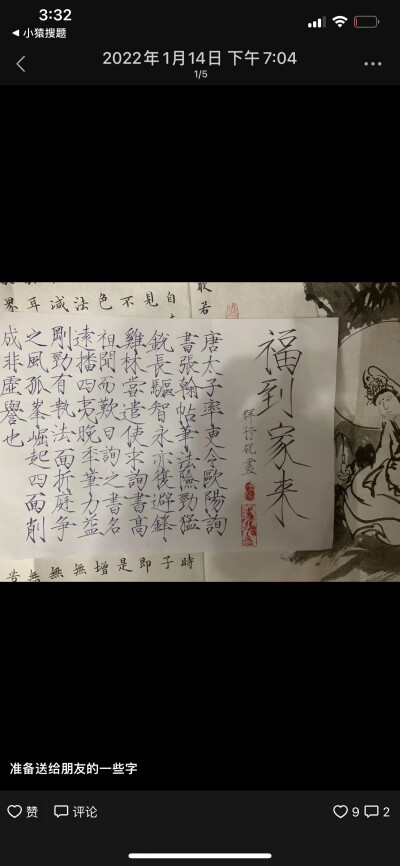 3:32
小猿搜题
2022年1月14日 下午7:04
1/5
般若
界耳減法色不見自
福到家来
釋行硯
唐太子率更令歐陽詢
書張翰帖筆法險勁猛
銳長驅智永亦復避鋒
雞林嘗遣使求詢書高
祖聞而歎曰詢之書名
遠播四夷晚年筆力益
剛勁有執法面折庭爭
之風孤峯崛起四面削
成非虛譽也
無無無增是即子時
准备送给朋友的一些字
赞
评论
9
2